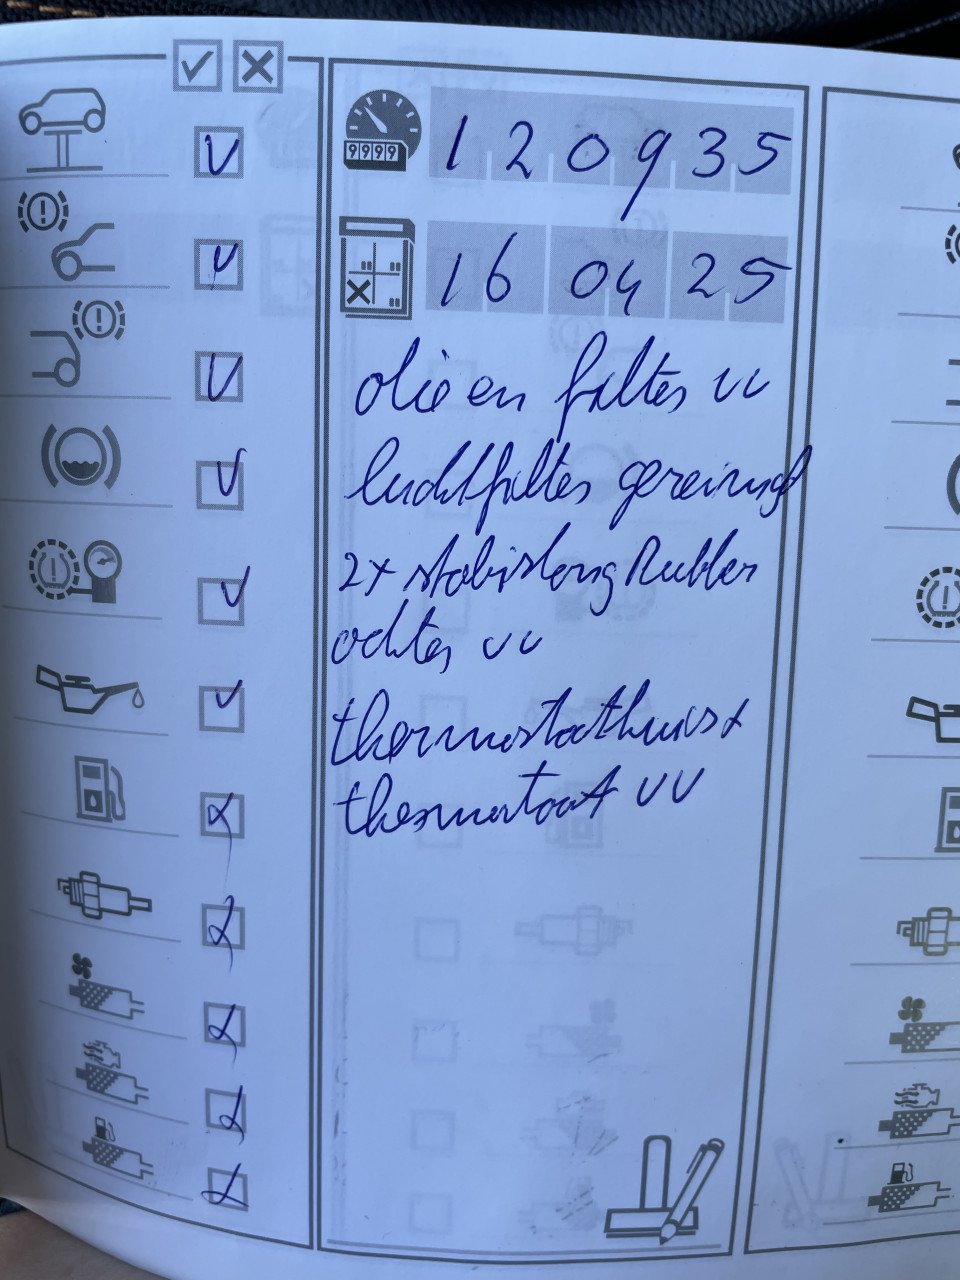 9999
120935
16 04 25
olie en filter vv
luchtfilter gereinigd
2x stabistang Rubber
achter vv
thermostaathuis +
thermostaat vv